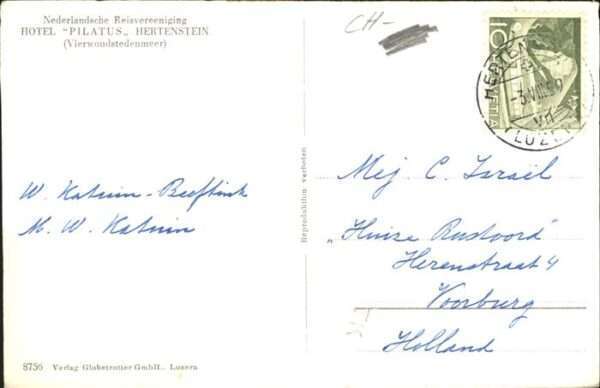 Nederlandsche Reisvereeniging
HOTEL "PILATUS„ HERTENSTEIN
(Vierwoudstedenmeer)
CH-
10
HELVETIA
HERTEN
-3.VIII.5
VII
(LUZE
W. Katuin-Beeftink
M. W. Katuin
Reproduktion verboten
Mej. C. Israël
„Huize Rustoord"
Herenstraat 4
Voorburg
Holland
8756 Verlag Globetrotter GmbH., Luzern